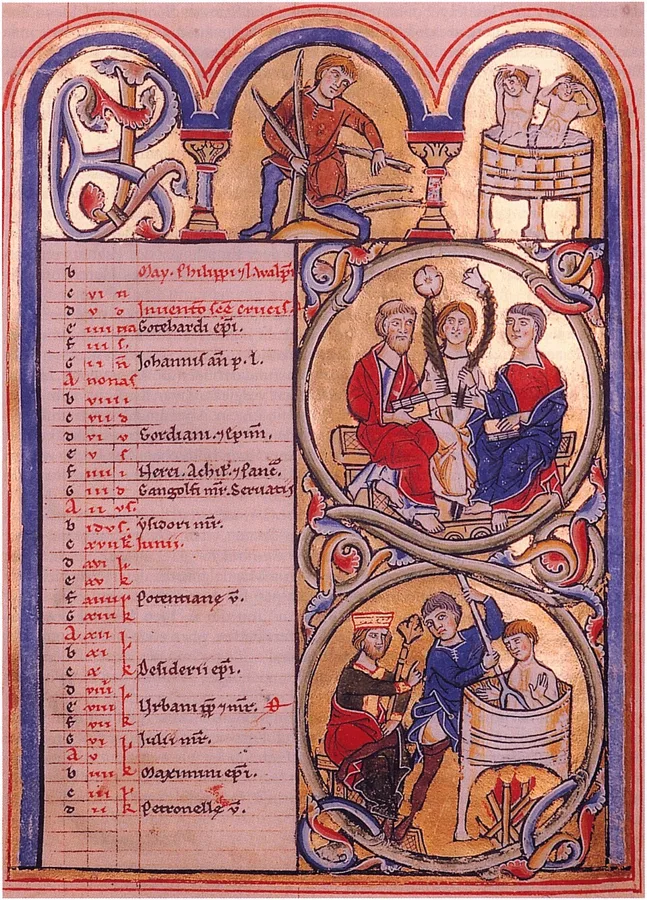 KL
b May. Philippi ⁊ J. Walp̄
c vi n
d v o Inventio sc̄e crucis.
e iiii na Gotehardi ep̄i.
f iii s.
G ii n̄ Johannis an̄ p. l.
A nonas
b viiii
c vii d
d vi v Gordiani. ⁊ Epim̄.
e v s
f iiii i Nerei. Achil. ⁊ Panc̄.
G iii d Gangolfi mr̄. Servatii
A ii vs
b idvs. ysidori mr̄.
c xvii k Junii.
d xvi l
e xv k
f xiiii l Potentiane v̄.
G xiii k
A xii l
b xi l
c x k Desiderii ep̄i.
d viiii l
e viii l Urbani p̄p ⁊ mr̄.
f vii k
G vi l Julii mr̄.
A v
b iiii k Maximini ep̄i.
c iii l
d ii k Petronelle v̄.